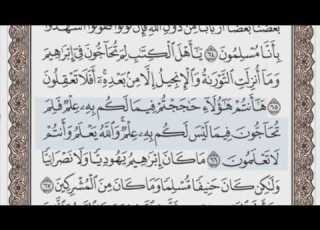 بَعْضُنَا بَعْضًا أَرْبَابًا مِّن دُونِ ٱللَّهِ فَإِن تَوَلَّوْا۟ فَقُولُوا۟ ٱشْهَدُوا۟
بِأَنَّا مُسْلِمُونَ ٦٤ يَـٰٓأَهْلَ ٱلْكِتَـٰبِ لِمَ تُحَآجُّونَ فِىٓ إِبْرَٰهِيمَ
وَمَآ أُنزِلَتِ ٱلتَّوْرَىٰةُ وَٱلْإِنجِيلُ إِلَّا مِنۢ بَعْدِهِۦٓ أَفَلَا تَعْقِلُونَ
٦٥ هَـٰٓأَنتُمْ هَـٰٓؤُلَآءِ حَـٰجَجْتُمْ فِيمَا لَكُم بِهِۦ عِلْمٌ فَلِمَ
تُحَآجُّونَ فِيمَا لَيْسَ لَكُم بِهِۦ عِلْمٌ وَٱللَّهُ يَعْلَمُ وَأَنتُمْ
لَا تَعْلَمُونَ ٦٦ مَا كَانَ إِبْرَٰهِيمُ يَهُودِيًّا وَلَا نَصْرَانِيًّا
وَلَـٰكِن كَانَ حَنِيفًا مُّسْلِمًا وَمَا كَانَ مِنَ ٱلْمُشْرِكِينَ ٦٧